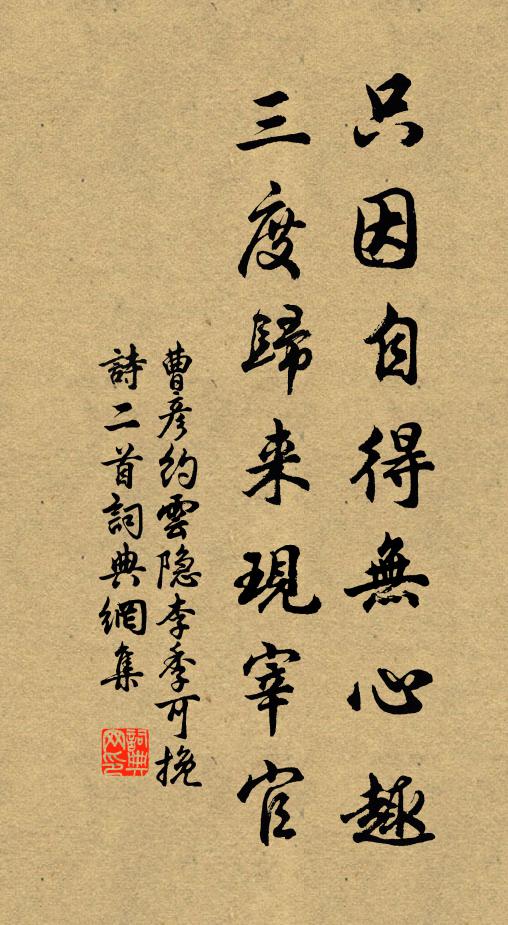 只因自得無心趣
三度歸来現宰官
曹彦約雲隐李季可挽
詩二首詞典網集